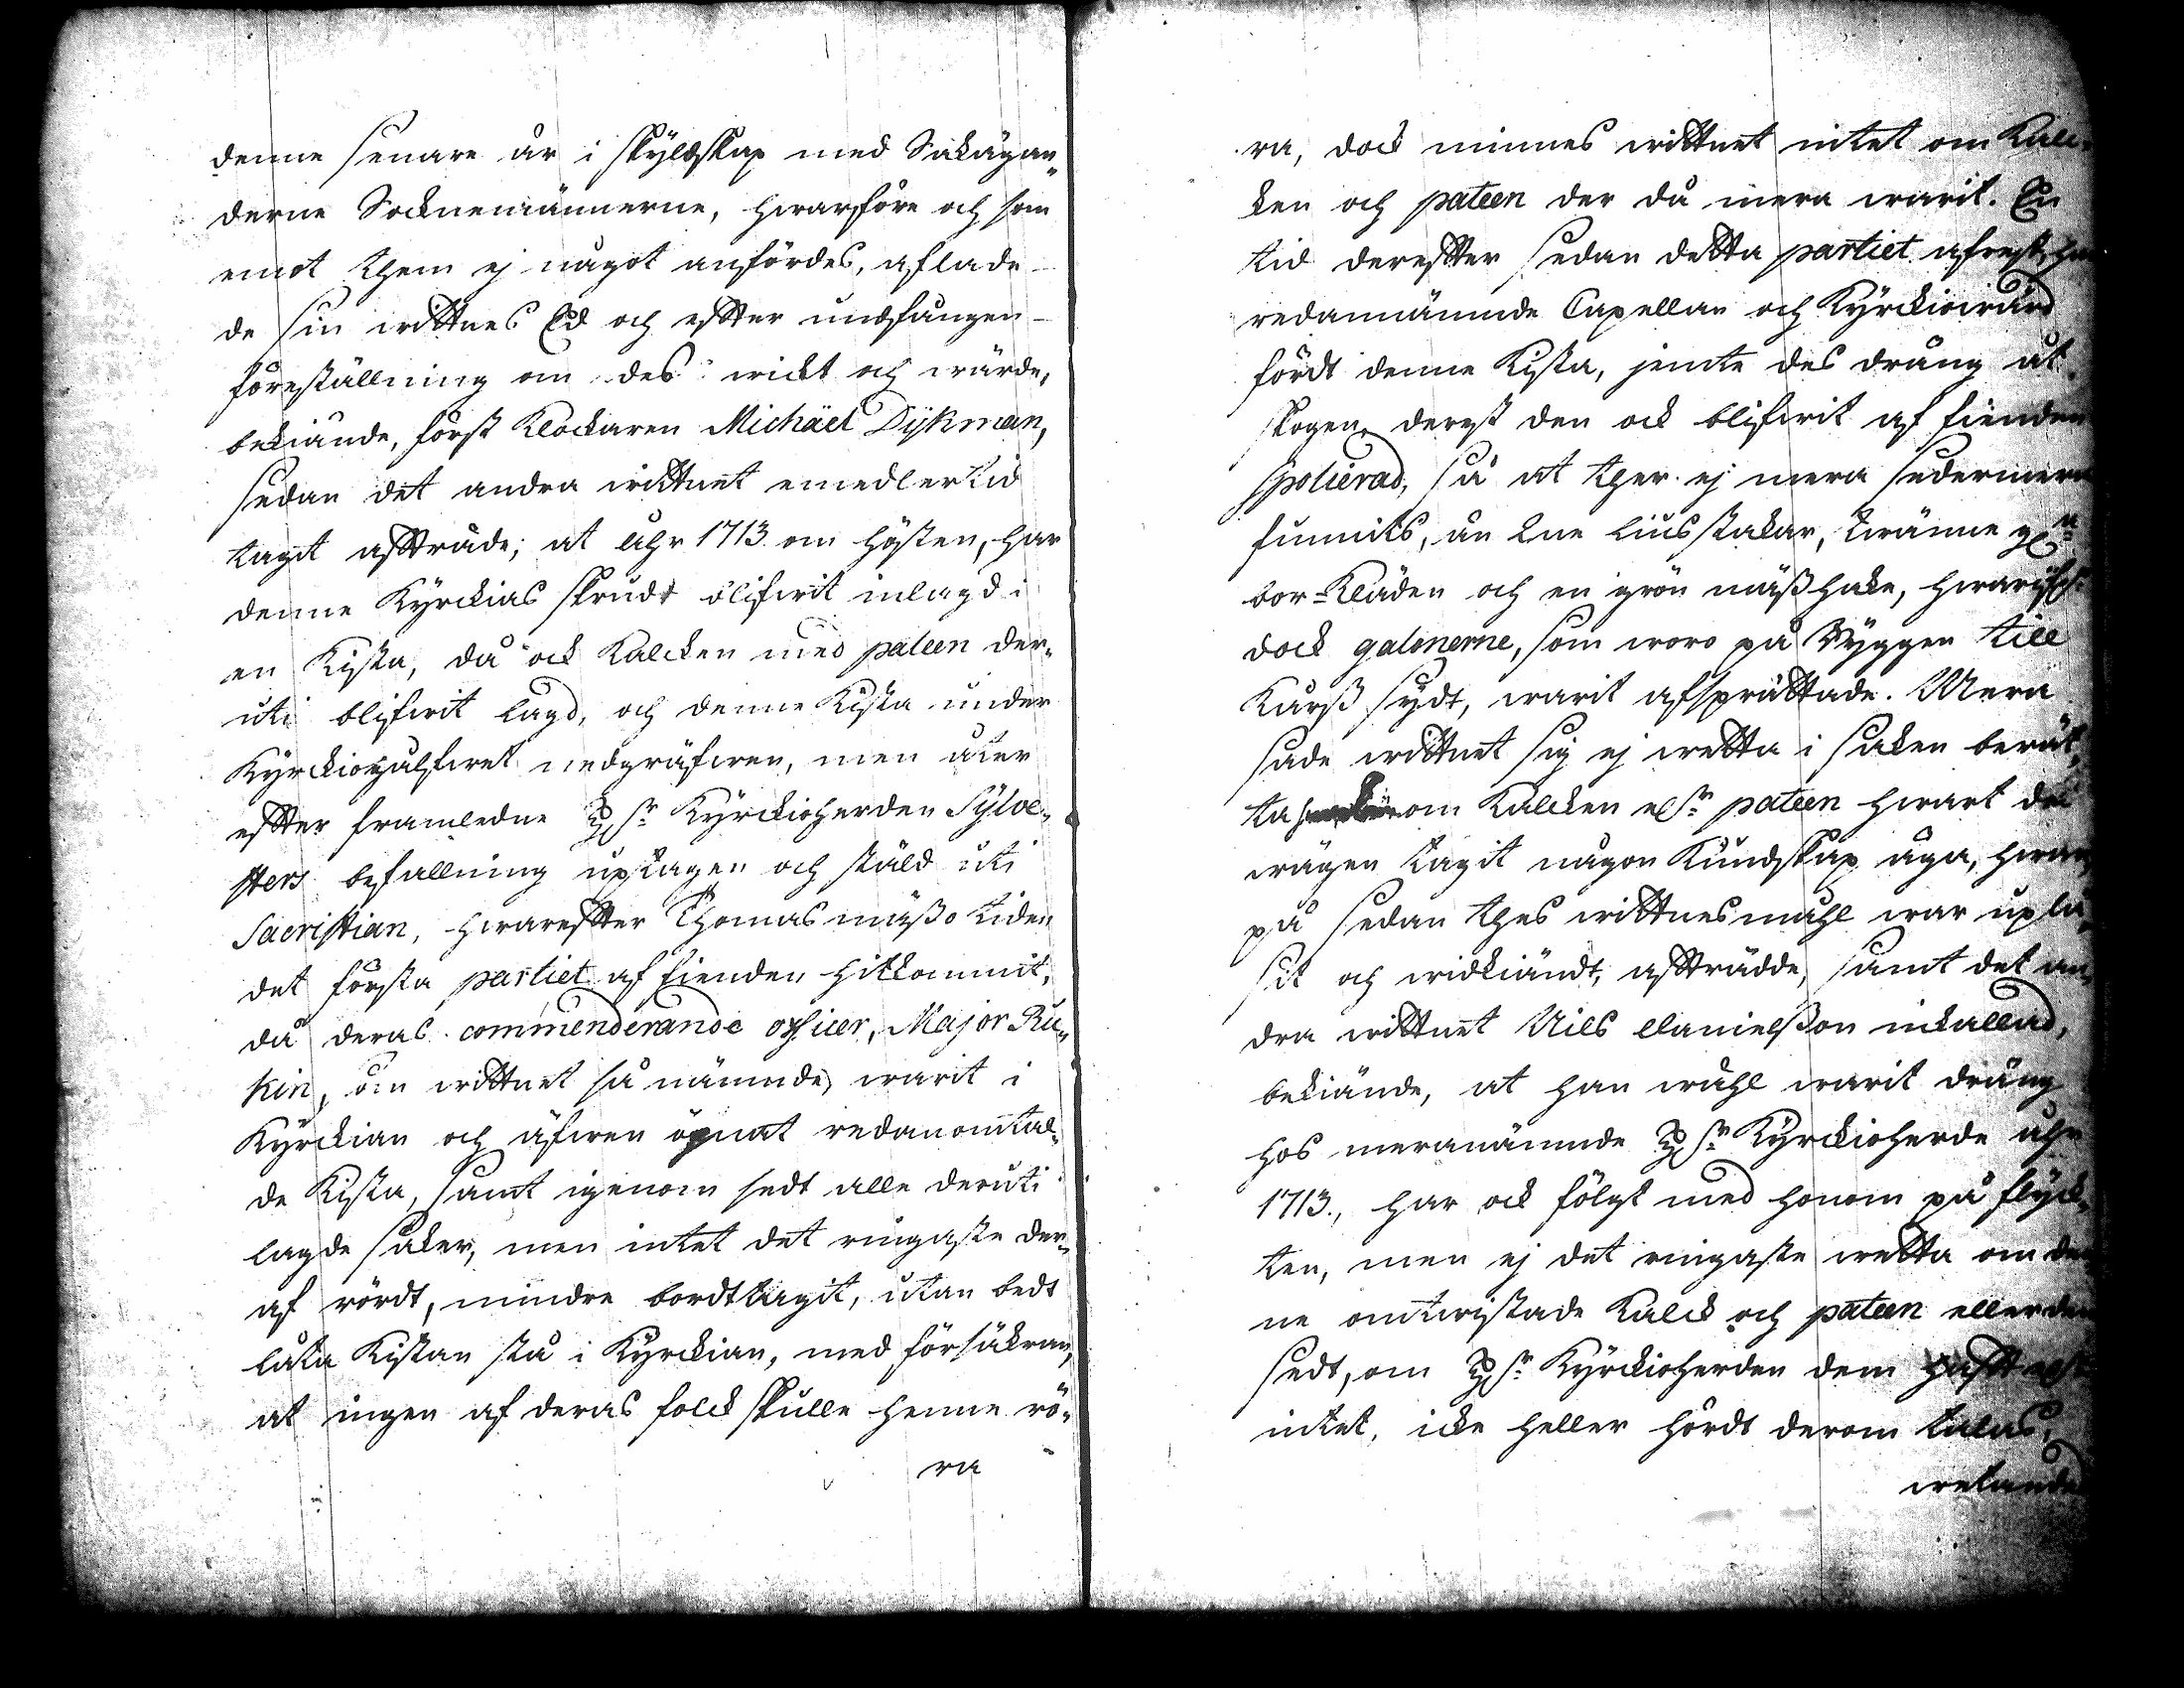 denne senare är i skyldskap med Sakägan„
derne Socknemännerne, hwarföre och som
emot them ej något anfördes, aflade-
de sin wittnes Ed och effter undfången-
föreställning om des wickt och wärde,
bekiände, först Klockaren Michäel Dijkman,
sedan det andra wittnet emedlertid
tagit affträde; at Åhr 1713 om hösten, har
denne Kyrckias skrudt blifwit inlagd i
en Kista, då ock Kalcken med pateen der„
uti blifwit lagd, och denne Kista under
Kyrckiogulfwet nedgräfwen, men åter
effter framledne Probstr Kyrckioherden Sylve„
sters befallning uptagen och stäld uti
Sacristian, hwareffter Thomas mässo tiden
det första partiet af fienden hitkommit,
då deras commenderande officer, Major Ru„
kin, om wittnet så nämnde, warit i
Kyrckian och äfwen öpnat redanomtal„
de Kista, samt igenom sedt alle deruti
lagde saker, men intet det ringaste der„
af rördt, mindre bordttagit, utan bedt
låta Kistan stå i Kyrckian, med försäkran,
at ingen af deras folck skulle henne rö„
ra
ra, dock minnes wittnet intet om Kalc„
ken och pateen der då mera warit. En
tid dereffter sedan detta partiet afrest, har
redannämnde Capellan och Kyrckiowärd
fördt denne Kista, jemte des dräng åt
skogen, derest den ock blifwit af fienden
spolierad, så at ther ej mera sedermera
funnits, än Ene liusstakar, twänne
bor-kläden och en grön mäßhake, hwarifrå
dock galonerne, som woro på Ryggen till
Kurß sydt, warit afsprättade. Mera
sade wittnet sig ej wetta i saken berät„
ta om Kalcken ellr pateen hwart de
wägen tagit någon Kundskap äga, hwar„
på sedan thes wittnesmåhl war uplä„
sit och widkiändt, affträdde, samt det an„
dra wittnet Nils Danielßon inkallad,
bekiände, at han wähl warit dräng
hos meranämnde Probstr Kyrckioherde åhr
1713., har ock fölgt med honom på flyck„
ten, men ej det ringaste wetta om den„
ne omtwistade Kalck och pateen eller den
sedt, om Probstr Kyrckioherden dem hafft ellr
intet, icke heller hördt derom talas,
wetandes